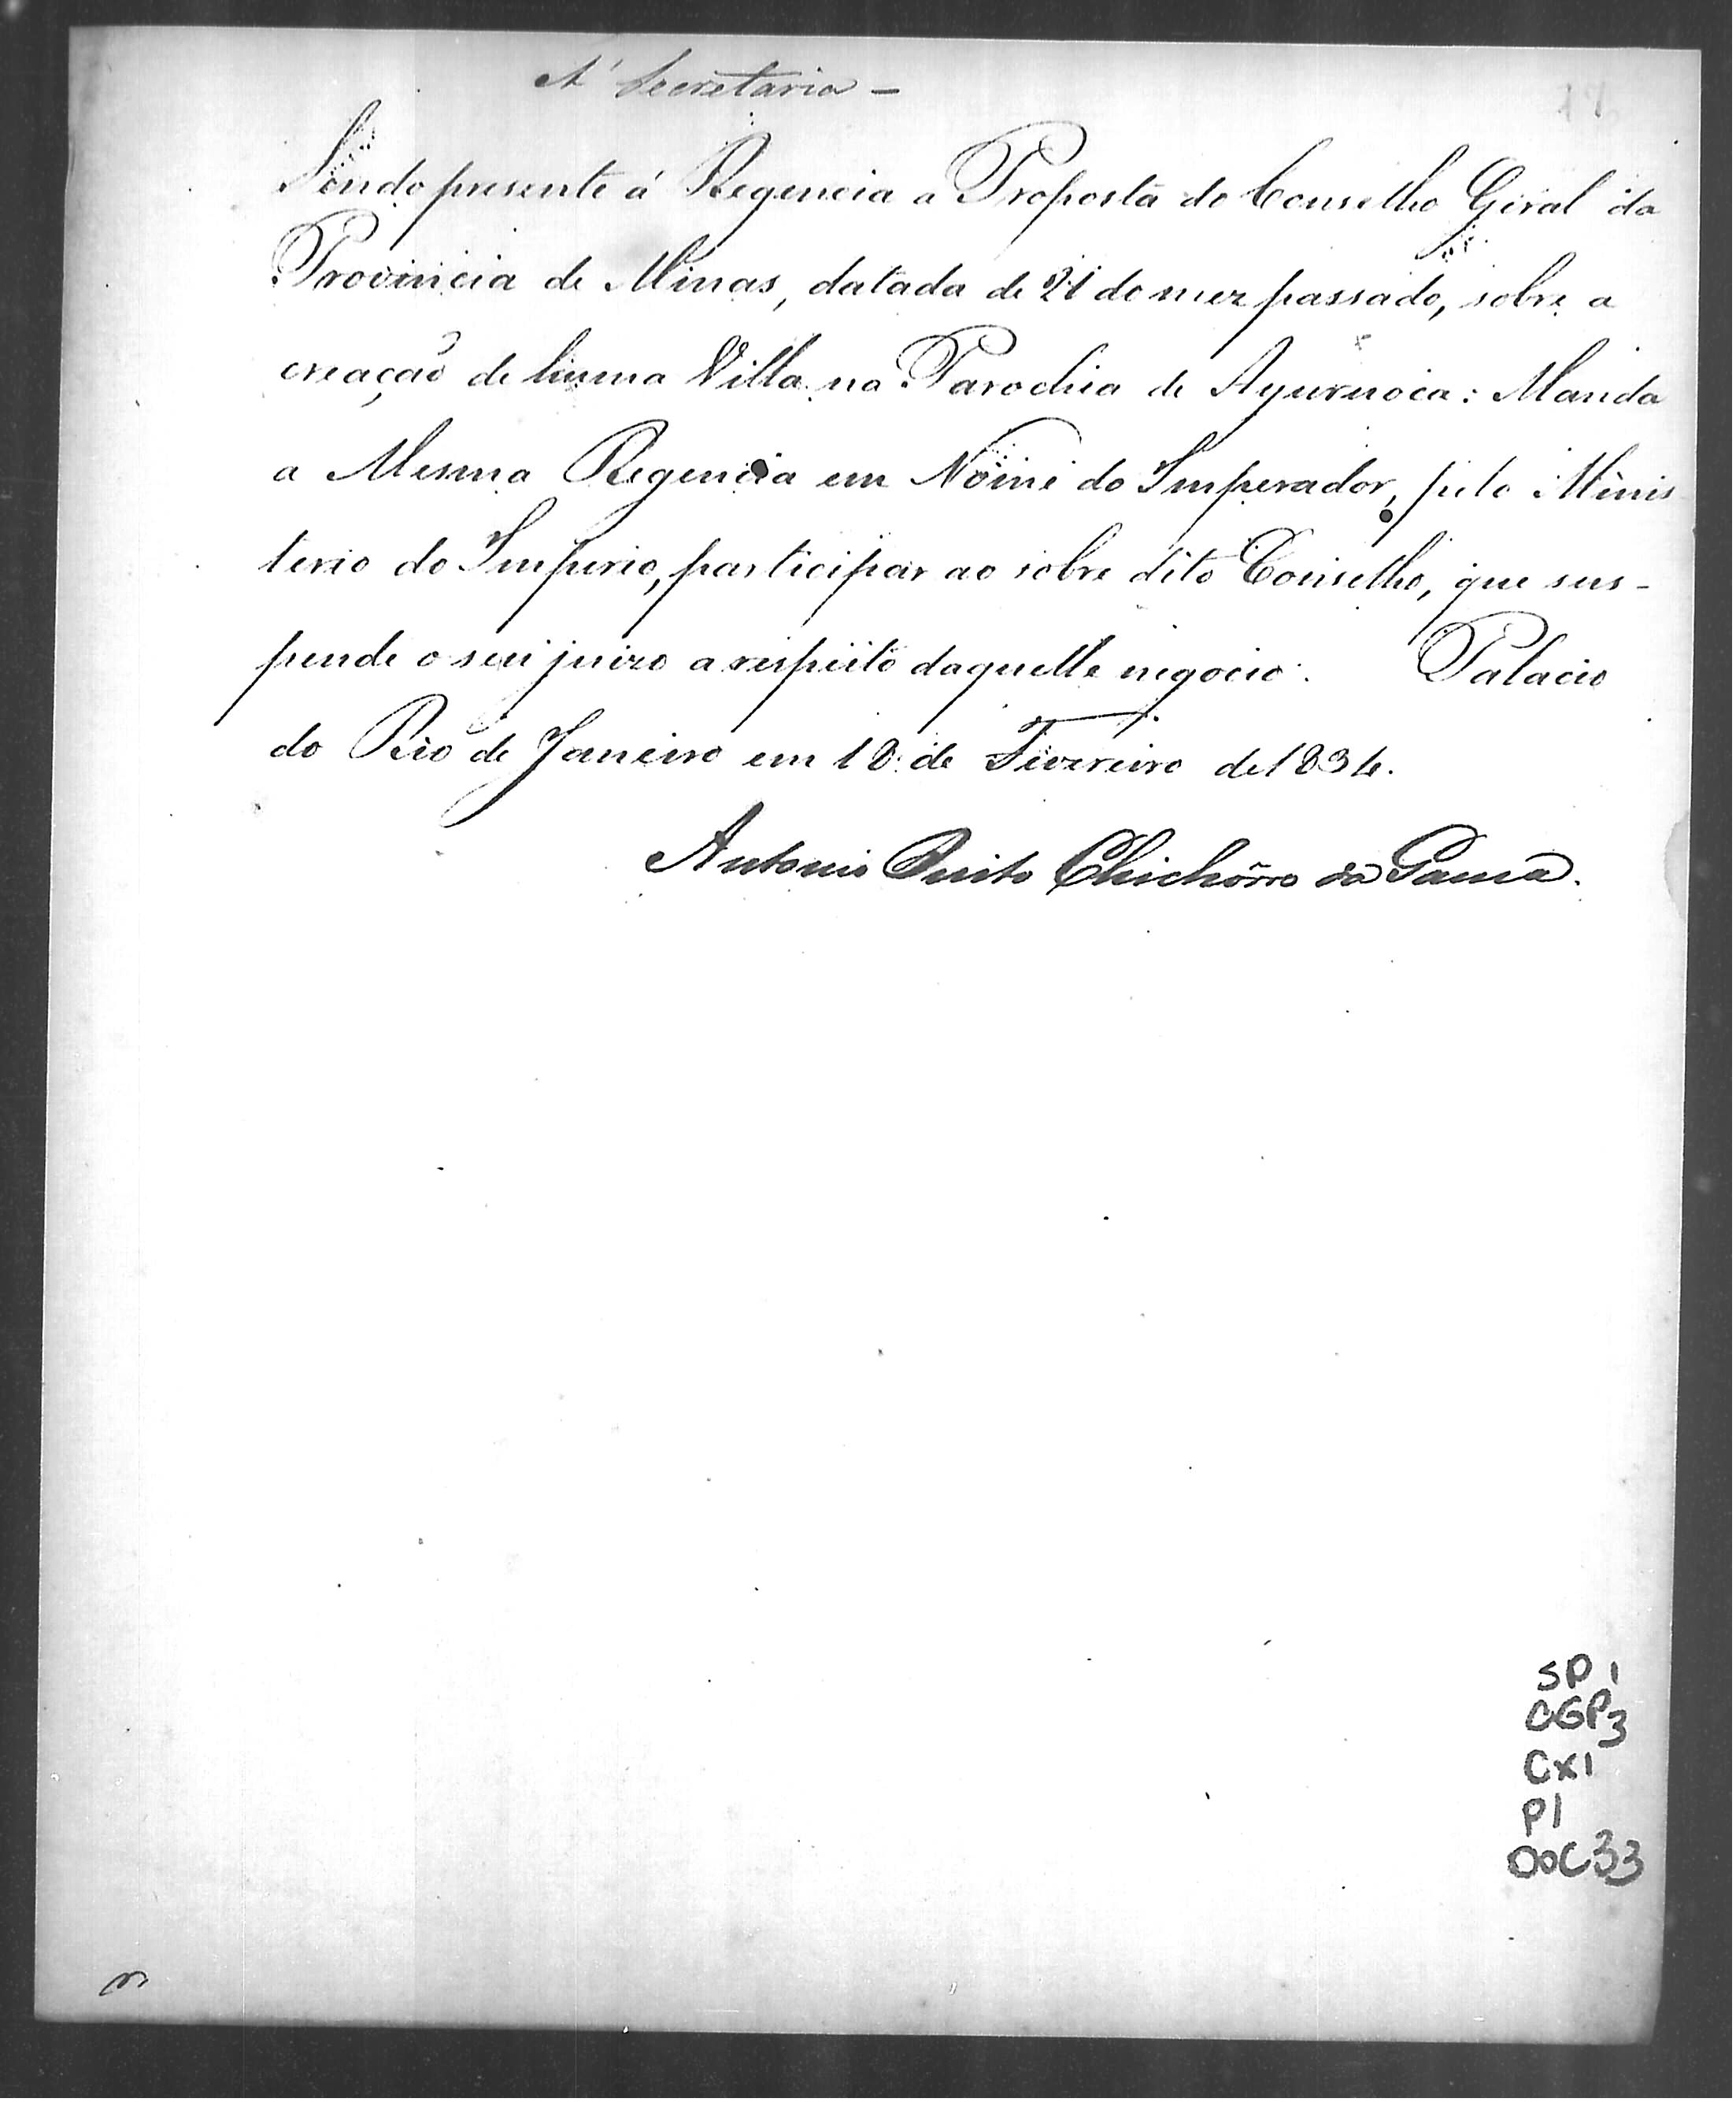 A' Secretaria -
Sendo presente á Regencia a Proposta do Conselho Geral da
Provincia de Minas, datada de 21 do mez passado, sobre a
creação de huma Villa na Parochia de Ayuruoca: Manda
a Mesma Regencia em Nome do Imperador, pelo Minis
terio do Imperio, participar ao sobre dito Conselho, que sus-
pende o seu juizo a respeito daquelle negocio. Palacio
do Rio de Janeiro em 18 de Fevereiro de 1834.
Antonio Pinto Chichôrro da Gama.
SP 1
CGP3
CX1
P1
DOC33